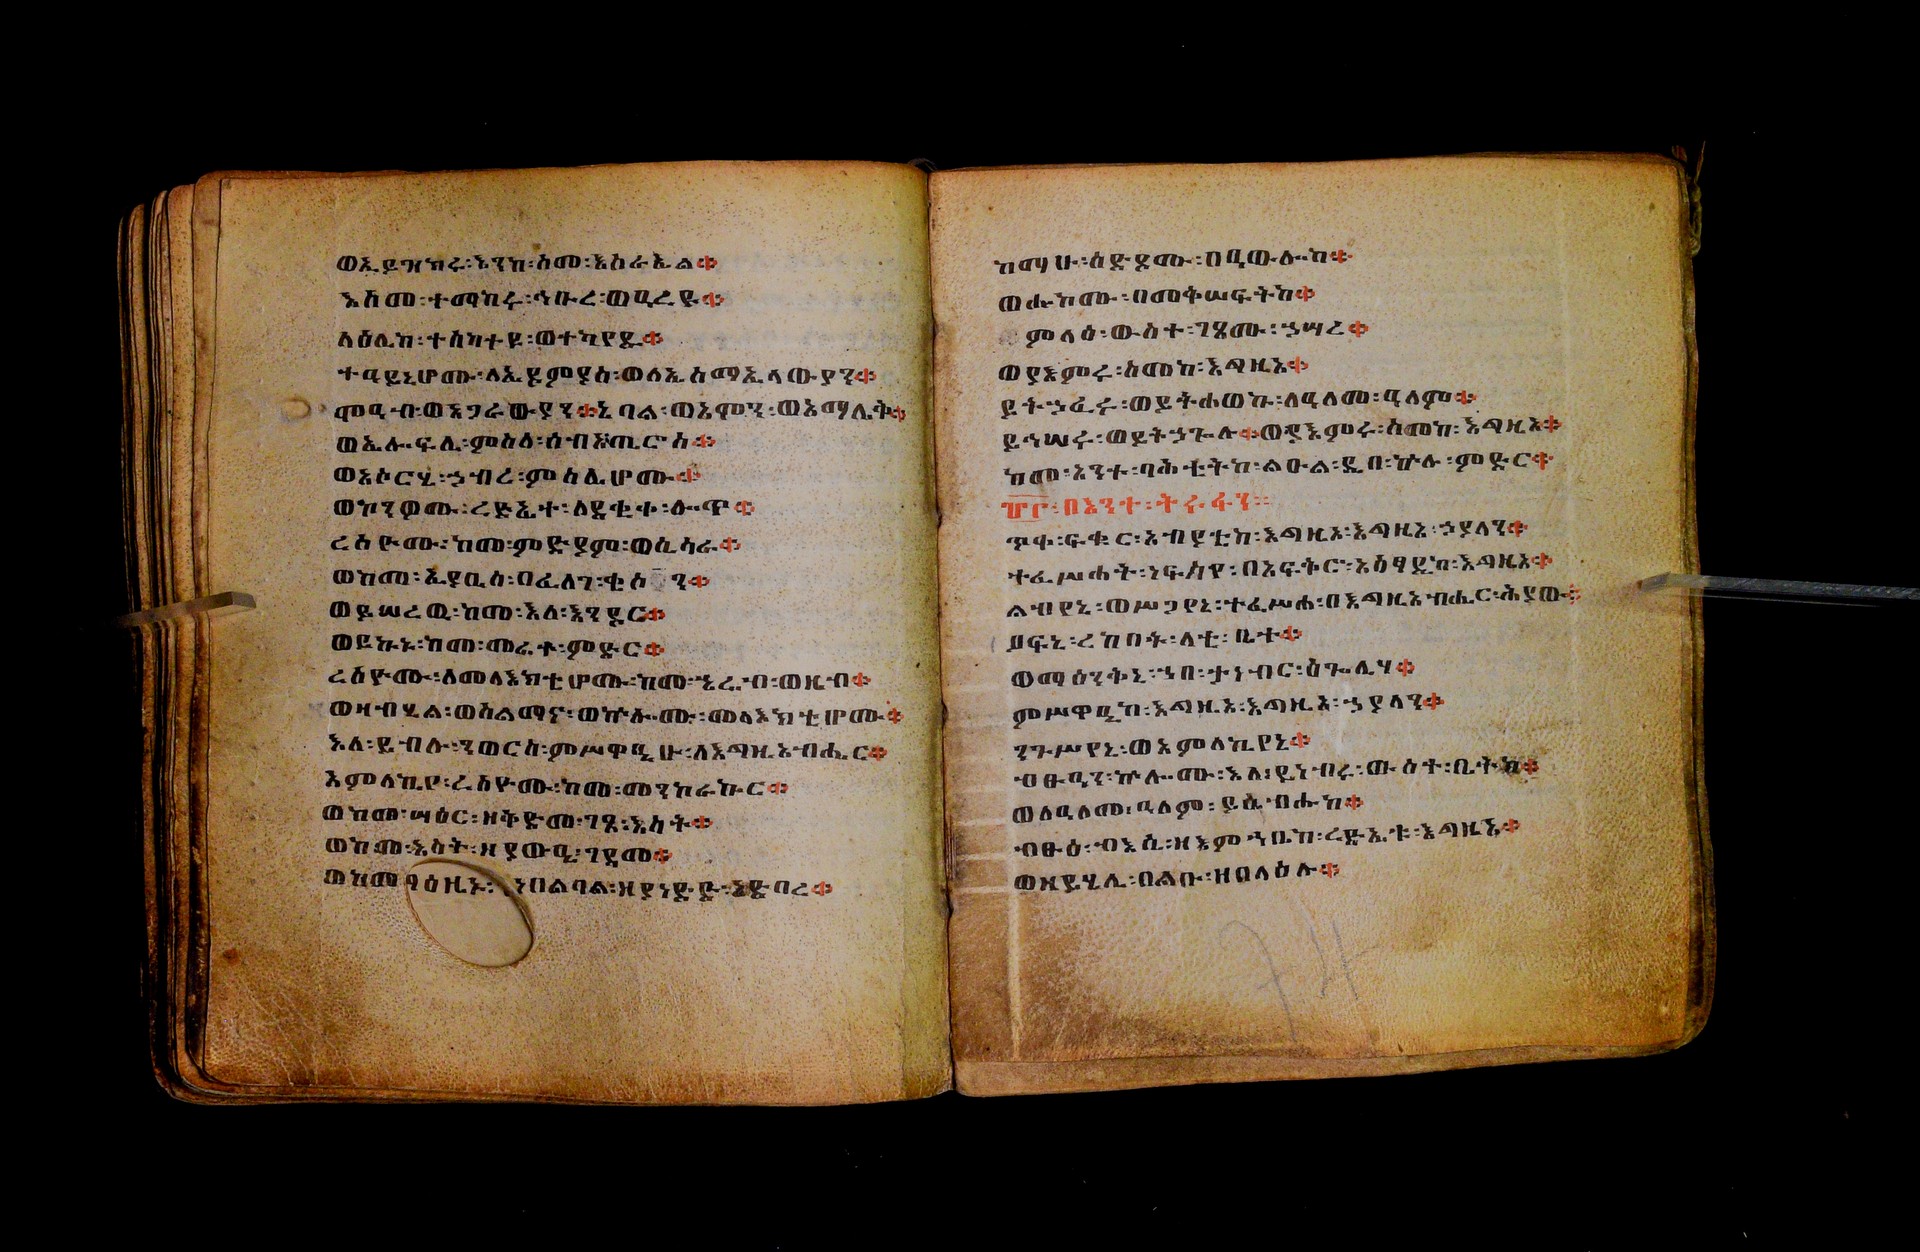 ወኢይዝክሩ፡እንከ፡ስመ፡እስራኤል
እስመ፡ተማከሩ፡ኅቡረ፡ወዓረዩ
ላዕሌከ፡ተሰካተዩ፡ወተካየዱ
ተዓይኒሆሙ፡ለኢዶምያስ፡ወለኢስማኤላውያን
ሞዓብ፡ወአጋራውያን ጌባል፡ወአሞን፡ወአማሌቅ
ወኢሎፍሊ፡ምስለ፡ሰብአ፡ጢሮስ
ወአሶርሂ፡ኃብረ፡ምስሌሆሙ
ወኮንዎሙ፡ረድኤተ፡ለደቂቀ፡ሎጥ
ረስዮሙ፡ከመ፡ምድያም፡ወሲሳራ
ወከመ፡ኢያቢስ፡በፈለገ፡ቂሶን
ወይሠረዉ፡ከመ፡እለ፡እንዶር
ወይኩኑ፡ከመ፡መሬተ፡ምድር
ረስዮሙ፡ለመላእክቲሆሙ፡ከመ፡ሄሬብ፡ወዜብ
ወዛብሄል፡ወስልማና፡ወኵሎሙ፡መላእክቲሆሙ
እለ፡ይብሉ፡ንወርስ፡ምሥዋዒሁ፡ለእግዚአብሔር
አምላኪየ፡ረስዮሙ፡ከመ፡መንኰራኵር
ወከመ፡ሣዕር፡ዘቅድመ፡ገጸ፡እሳት
ወከመ፡እሳት፡ዘያውዒ፡ገዳመ
ወከመ፡ነበልባል፡ዘያነድድ፡አድባረ
ከማሁ፡ስድዶሙ፡በዓውሎከ
ወሑኮሙ፡በመቅሠፍትከ
ምላዕ፡ውስተ፡ገጾሙ፡ኃሣረ
ወያእምሩ፡ስመከ፡እግዚኦ
ይትኃፈሩ፡ወይትሐወኩ፡ለዓለመ፡ዓለም
ይኀሠሩ፡ወይትኃጐሉ ወያእምሩ፡ስመከ፡እግዚኦ
ከመ፡አንተ፡ባሕቲትከ፡ልዑል፡ዲበ፡ኵሉ፡ምድር
፹፫፡በእንተ፡ትሩፋን።
ጥቀ፡ፍቁር፡አብያቲከ፡እግዚኦ፡እግዚአ፡ኃያላን
ተፈሥሐት፡ነፍስየ፡በአፍቅሮ፡አዕፃዲከ፡እግዚኦ
ልብየኒ፡ወሥጋየኒ፡ተፈሥሐ፡በእግዚአብሔር፡ሕያው
ዖፍኒ፡ረከበት፡ላቲ፡ቤተ
ወማዕንቅኒ፡ኀበ፡ታነብር፡ዕጐሊሃ
ምሥዋዒከ፡እግዚኦ፡እግዚአ፡ኃያላን
ንጉሥየኒ፡ወአምላኪየኒ
ብፁዓን፡ኵሎሙ፡እለ፡ይነብሩ፡ውስተ፡ቤትከ
ወለዓለመ፡ዓለም፡ይሴብሑከ
ብፁዕ፡ብእሲ፡ዘእምኀቤከ፡ረድኤቱ፡እግዚኦ
ወዘይሄሊ፡በልቡ፡ዘበላዕሉ